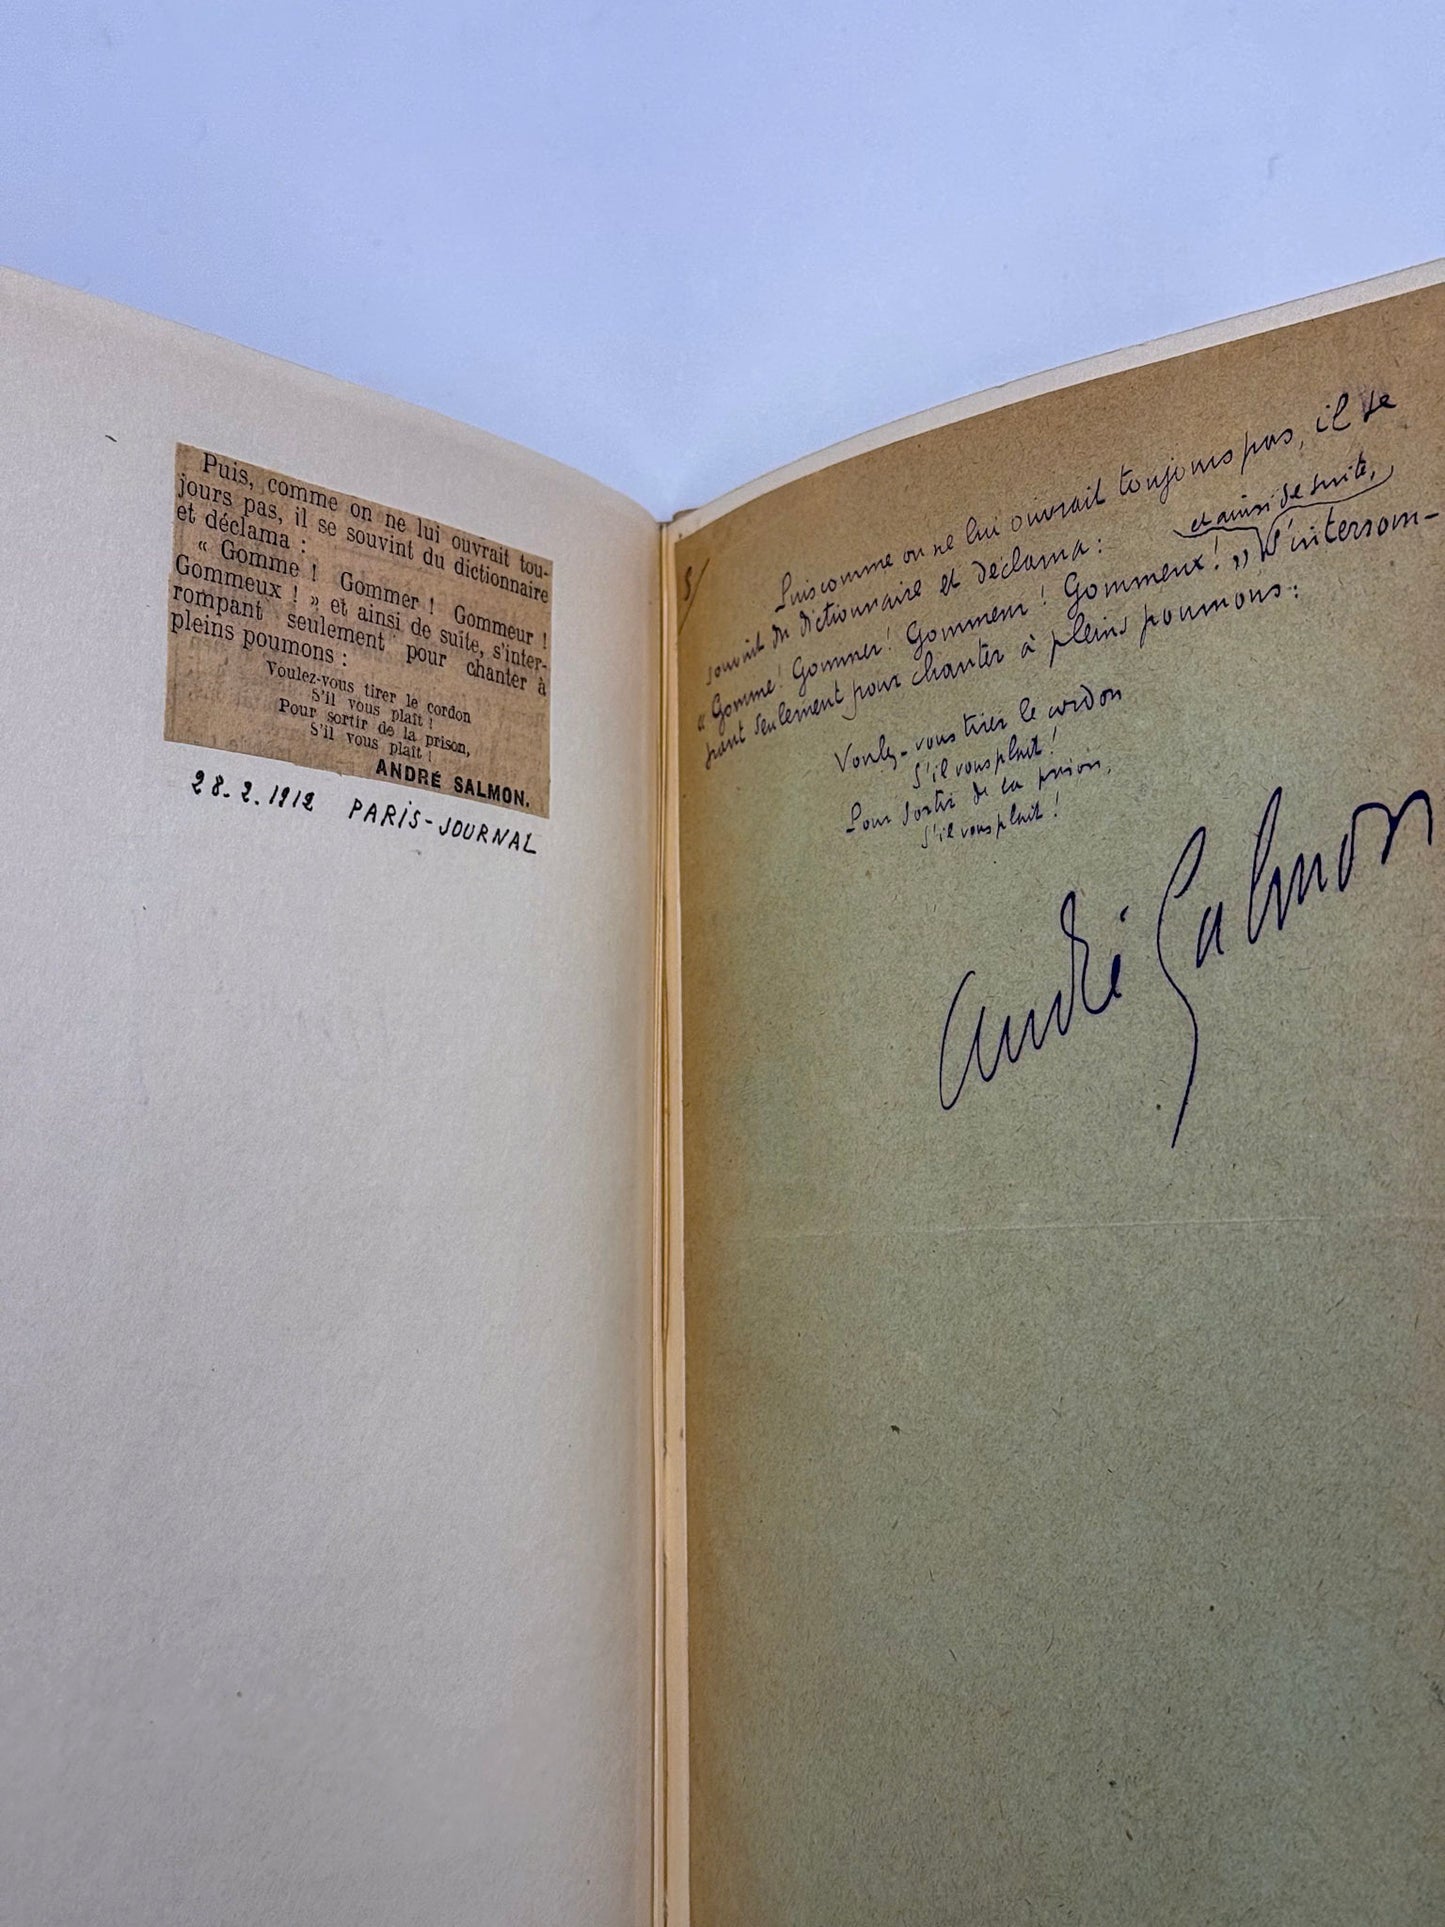 Puis, comme on ne lui ouvrait tou-
jours pas, il se souvint du dictionnaire
et déclama :
« Gomme ! Gommer ! Gommeur !
Gommeux ! » et ainsi de suite, s'inter-
rompant seulement pour chanter à
pleins poumons :
Voulez-vous tirer le cordon
S'il vous plaît !
Pour sortir de la prison,
S'il vous plaît !
ANDRÉ SALMON.
28.2.1912 PARIS-JOURNAL
5/
Puis comme on ne lui ouvrait toujours pas, il se
souvint du dictionnaire et déclama :
et ainsi de suite,
« Gomme ! Gommer ! Gommeur ! Gommeux ! » s'interrom-
pant seulement pour chanter à pleins poumons :
Voulez-vous tirer le cordon
S'il vous plait !
Pour sortir de la prison,
S'il vous plait !
André Salmon